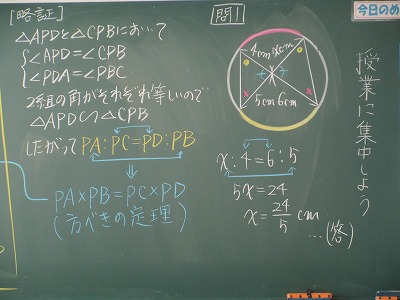 [略証]
△APDと△CPBにおいて
∠APD=∠CPB
∠PDA=∠PBC
2組の角がそれぞれ等しいので
△APD∽△CPB
したがって PA:PC=PD:PB
⇓
PA×PB=PC×PD
(方べきの定理)
問1
4cm xcm
5cm 6cm
x:4=6:5
5x=24
x=24/5 cm
…(答)
授業に集中しよう
今日のめ